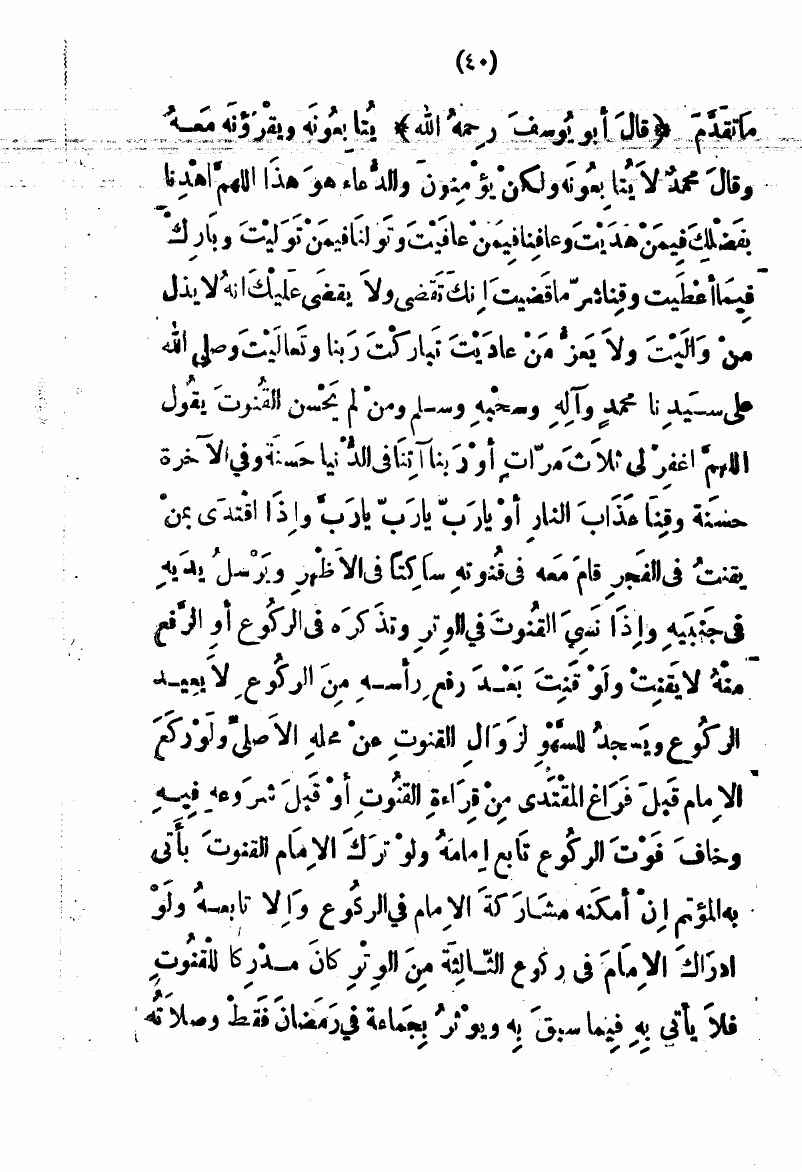 (٤٠)
مَا تَقَدَّمَ ﴿قَالَ أَبو يُوسفَ رحمهُ الله﴾ يُتَابعُونَه ويقْرَؤنَه مَعـهُ
وقالَ محمدٌ لاَ يُتابعُونَه ولكنْ يؤْمنونَ والدُّعاء هوَ هذَا اللهمَّ اهْدِنا
بفَضْلِكَ فِيمَنْ هَدَيْتَ وعافِنا فِيمَنْ عافَيْتَ وتَولنَا فيمَنْ تَوَليْتَ وبَارِكْ
فِيمَا أعْطَيت وقِنا شرّ ما قضيتَ اِنكَ تَقضي ولاَ يقضَى عليْكَ انهُ لا يذل
منْ وَالَيْتَ ولاَ يَعزُّ مَنْ عادَيْتَ تَباركْتَ رَبنا وتَعاليْتَ وصلى الله
على سـيدِنا محمدٍ وآلِهِ وصحْبهِ وسـلم ومنْ لم يَحْسن القُنوتَ يقُول
اللهمَّ اغفرْ لى ثلاثَ مَرّاتٍ أوْ رَبنا آتِنَا فى الدُّنْيا حَسنَةً وفي الآخرة
حسَنَة وقِنَا عَذَابَ النارِ أوْ يارَبّ يارَبّ يارَبّ واِذَا اقْتدَى بمنْ
يقنتُ فى الفَجرِ قامَ مَعه فى قُنوتهِ ساَكِتاً فى الاَظْهرِ ويَرْسلُ يديَهِ
فى جَنبيَهِ واِذَا نَسِيَ القُنوتَ في الوِترِ وتذكرَه فى الركُوع أوِ الرَّفع
منْهُ لا يَقنتْ ولَوْ قَنتَ بَعْـدَ رفعِ رأسـهِ مِنَ الركُوعِ لاَ يعيـد
الركُوع ويَسجدُ للسَّهْوِ لزَوَالِ القنوتِ عنْ محلهِ الاَصلىِّ ولَوْ ركَعَ
الاِمام قَبلَ فَرَاغ المقْتَدى مِنْ قِرَاءةِ القنُوتِ أوْ قَبلَ شرَوعهِ فِيـهِ
وخافَ فَوْتَ الركُوع تَابع اِمامَهُ ولوْ تركَ الاِمَام القنوتَ يأتى
به المؤتم اِنْ أمكنَه مشَارَكَةَ الاِمام في الركُوع وَاِلا تابعـهُ ولَوْ
ادرَكَ الاِمَامَ فى ركوع الثّـالِثَةِ مِنَ الوِتْرِ كانَ مـدْرِكا للْقنُوتِ
فلاَ يأتي بِهِ فِيما سبقَ بِه ويوْترُ بِجَماعة في رَمَضانَ فَقطْ وصلاَتُه